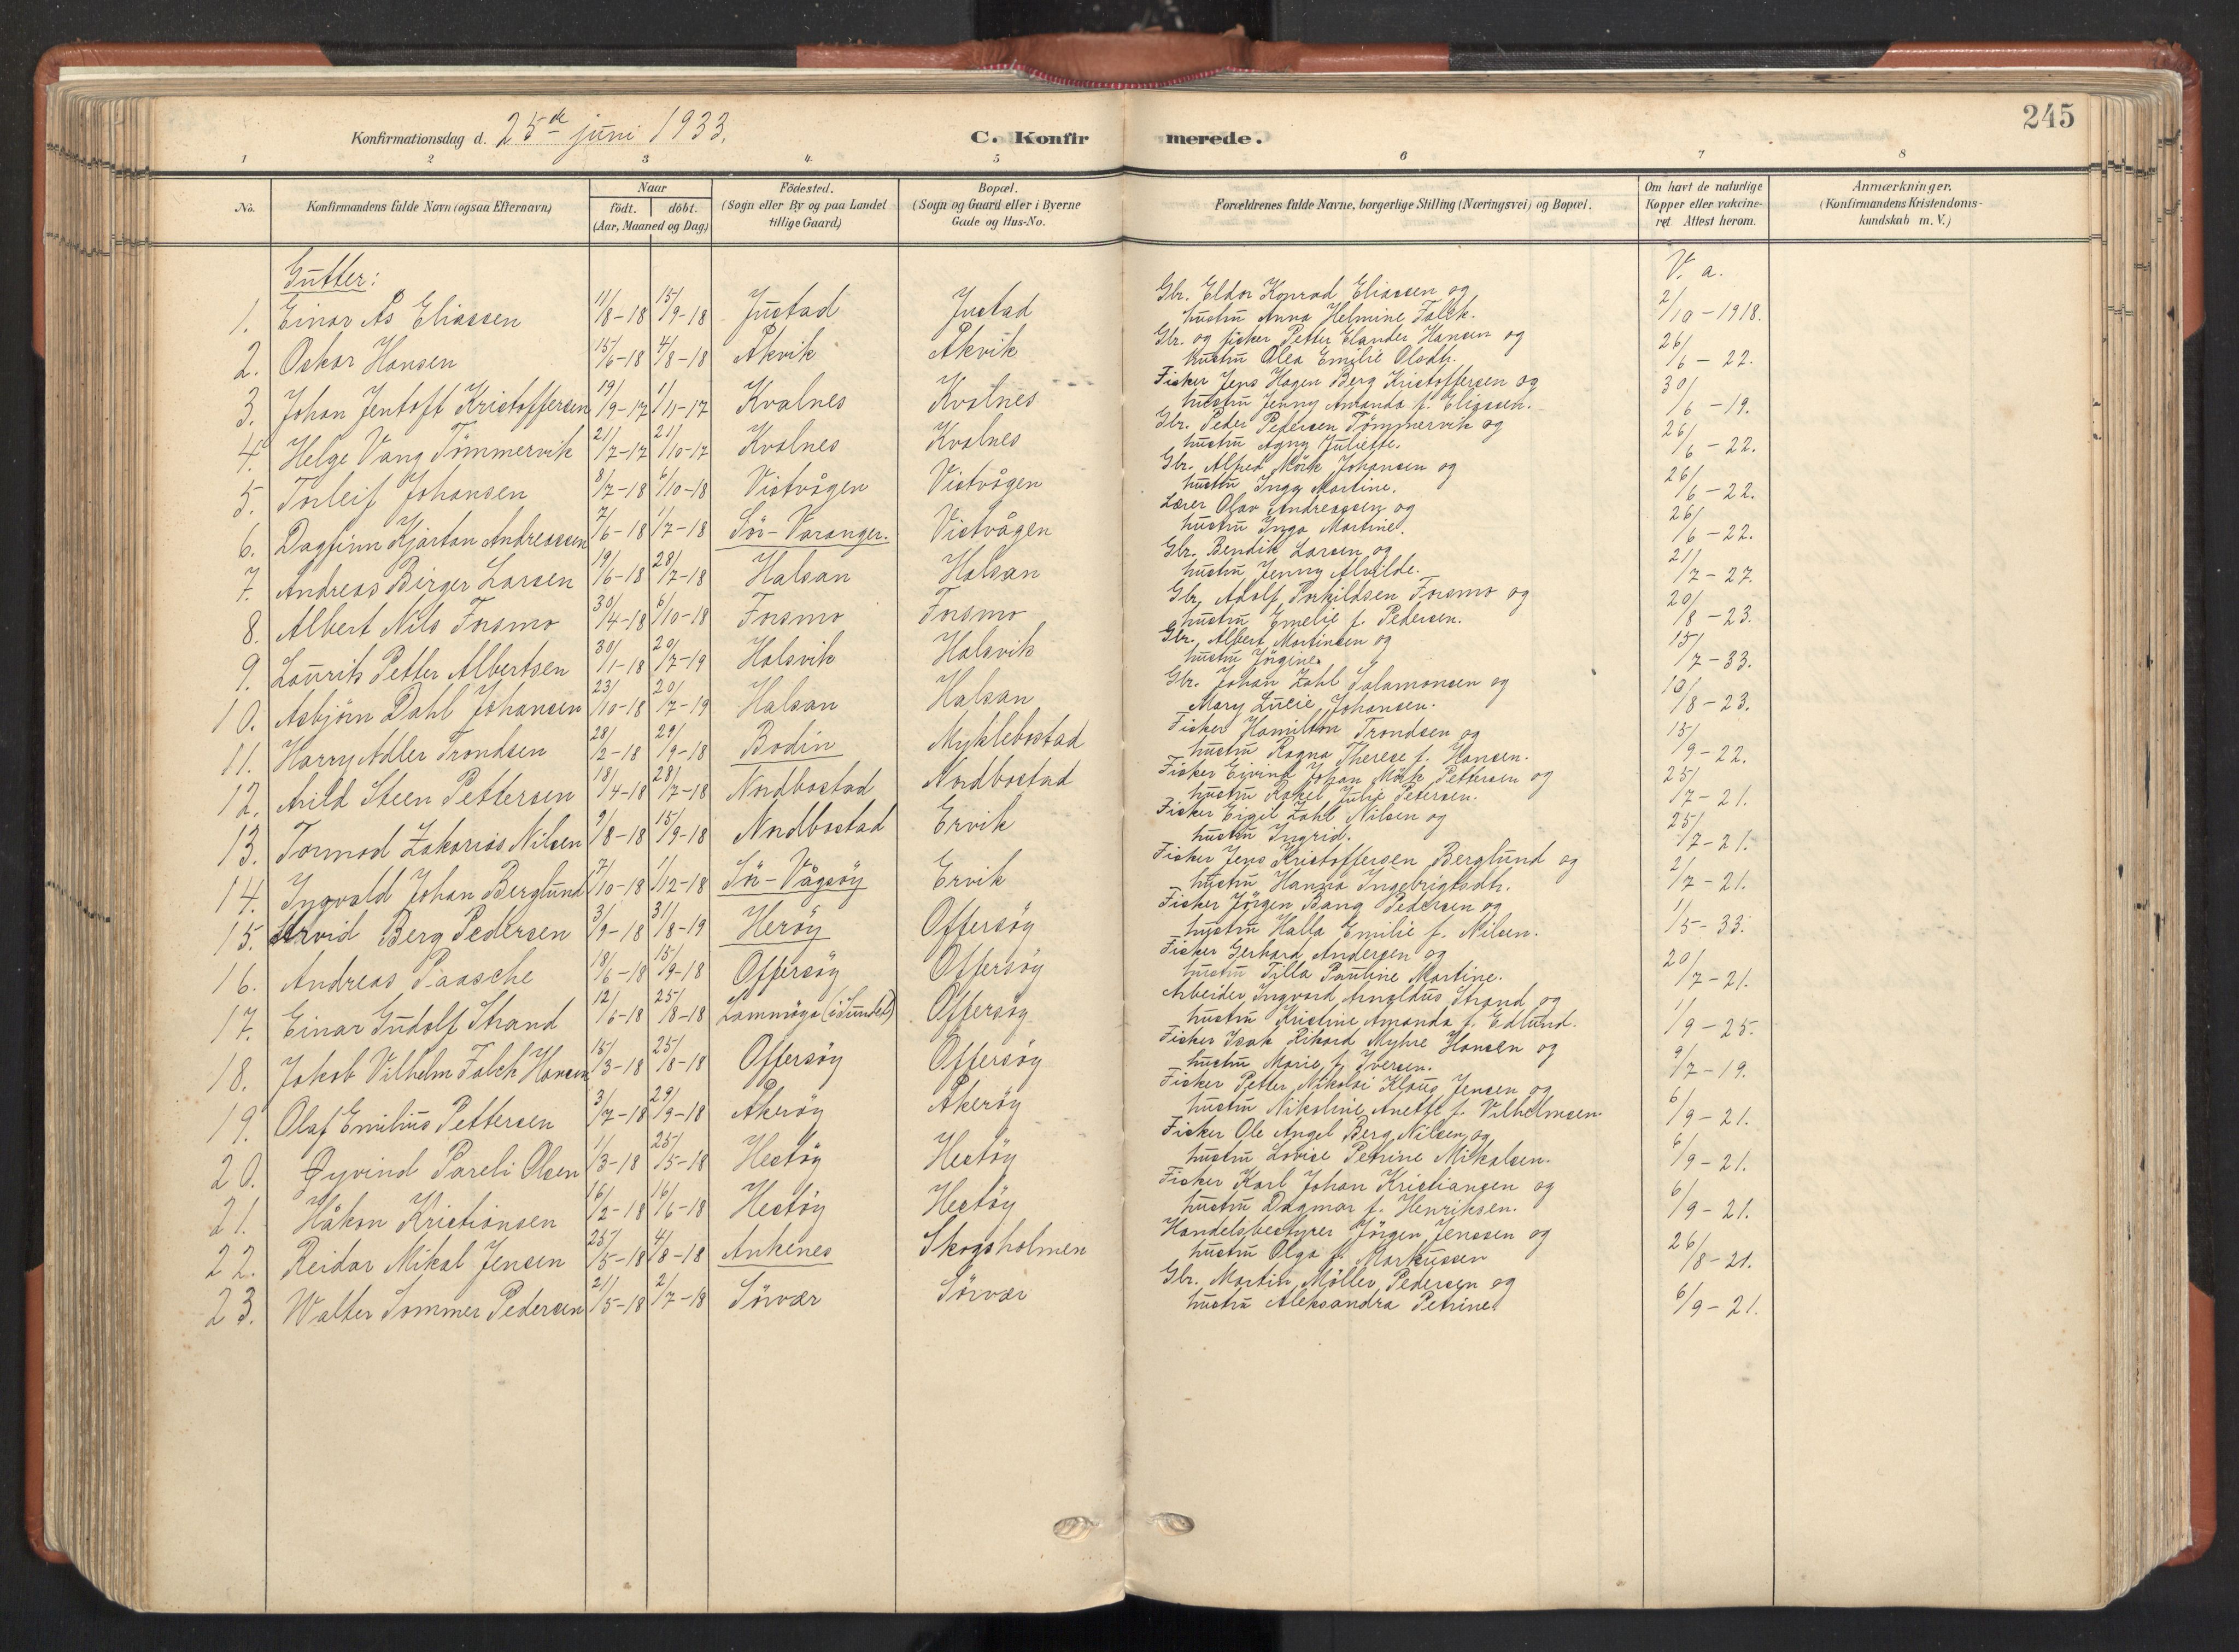 245
Konfirmationsdag d. 25de juni 1933.
C. Konfirmerede.
1 2 3 4. 5 6 7 8
No.
Konfirmandens fulde Navn (ogsaa Efternavn)
Naar
født. døbt.
(Aar, Maaned og Dag)
Fødested.
(Sogn eller By og paa Landet
tillige Gaard)
Bopæl.
(Sogn og Gaard eller i Byerne
Gade og Hus-No.
Forældrenes fulde Navne, borgerlige Stilling (Næringsvei) og Bopæl.
Om havt de naturlige
Kopper eller vakcine-
ret. Attest herom.
Anmærkninger.
(Konfirmandens Kristendoms-
kundskab m. V.)
Gutter:
V. a.
1. Einar Ås Eliassen 11/8-18 15/9-18 Justad Justad Gbr. Eldor Konrad Eliassen og
hustru Anna Helmine Falck. 2/10-1918.
2. Oskar Hansen 15/6-18 4/8-18 Åkvik Åkvik Gbr. og fisker Petter Elander Hansen og
hustru Olea Emilie Olsdtr. 26/6-22.
3. Johan Jentoft Kristoffersen 19/9-17 1/11-17 Kvalnes Kvalnes Fisker Jens Hagen Berg Kristoffersen og
hustru Jenny Amanda f. Eliassen. 30/6-19.
4. Helge Vang Tömmervik 21/7-17 21/10-17 Kvalnes Kvalnes Gbr. Peder Pedersen Tömmervik og
hustru Agny Juliette. 26/6-22.
5. Torleif Johansen 8/7-18 6/10-18 Vistvågen Vistvågen Gbr. Alfred Mörk Johansen og
hustru Inga Martine. 26/6-22.
6. Dagfinn Kjartan Andreassen 7/6-18 1/7-18 Sör-Varanger. Vistvågen Lærer Olav Andreassen og
hustru Inga Martine. 26/6-22.
7. Andreas Birger Larsen 19/6-18 28/7-18 Halsan Halsan Gbr. Bendik Larsen og
hustru Jenny Alvilde. 21/7-27.
8. Albert Nils Forsmo 30/4-18 6/10-18 Forsmo Forsmo Gbr. Adolf Torkildsen Forsmo og
hustru Emelie f. Pedersen. 20/8-23.
9. Lauritz Petter Albertsen 30/1-18 20/7-19 Halsvik Halsvik Gbr. Albert Martinsen og
hustru Jörgine. 15/7-33.
10. Asbjörn Dahl Johansen 23/10-18 20/7-19 Halsan Halsan Gbr. Johan Zahl Salamonsen og
Mary Lucie Johansen. 10/8-23.
11. Harry Adler Trondsen 28/2-18 29/9-18 Bodin Myklebostad Fisker Hamilton Trondsen og
hustru Ragna Therese f. Hansen. 15/9-22.
12. Arild Steen Pettersen 18/4-18 28/7-18 Nordbostad Nordbostad Fisker Eivind Johan Mörk Pettersen og
hustru Rakel Julie Petersen. 25/7-21.
13. Tormod Zakarias Nilsen 9/8-18 15/9-18 Nordbostad Ervik Fisker Eigil Zahl Nilsen og
hustru Ingrid. 25/7-21.
14. Ingvald Johan Berglund 7/10-18 1/12-18 Sör-Vågsöy Ervik Fisker Jens Kristoffersen Berglund og
hustru Hanna Ingebrigtsdtr. 2/7-21.
15. Arvid Berg Pedersen 3/9-18 31/8-19 Heröy Offersöy Fisker Jörgen Bang Pedersen og
hustru Halla Emilie f. Nilsen. 1/5-33.
16. Andreas Paasche 18/6-18 15/9-18 Offersöy Offersöy Fisker Gerhard Andersen og
hustru Tilla Pauline Martine. 20/7-21.
17. Einar Gudolf Strand 12/6-18 25/8-18 Lammöya (i Sundet) Offersöy Arbeider Ingvard Arnoldus Strand og
hustru Kristine Amanda f. Edlund. 1/9-25.
18. Jakob Vilhelm Falch Hansen 15/3-18 25/8-18 Offersöy Offersöy Fisker Isak Rikard Myhre Hansen og
hustru Marie f. Iversen. 9/7-19.
19. Olaf Emilius Pettersen 3/7-18 29/9-18 Åkeröy Åkeröy Fisker Petter Nikolai Klaus Jensen og
hustru Nikoline Anette f. Vilhelmsen. 6/9-21.
20. Øyvind Pareli Olsen 1/3-18 25/5-18 Hestöy Hestöy Fisker Ole Angel Berg Nilsen og
hustru Lovise Petrine Mikalsen. 6/9-21.
21. Håkon Kristiansen 16/2-18 16/6-18 Hestöy Hestöy Fisker Karl Johan Kristiansen og
hustru Dagmar f. Henriksen. 6/9-21.
22. Reidar Mikal Jensen 25/5-18 4/8-18 Ankenes Skogsholmen Handelsbestyrer Jörgen Jenssen og
hustru Olga f. Markussen 26/8-21.
23. Walter Sommer Pedersen 21/5-18 2/7-18 Sörvær Sörvær Gbr. Martin Möller Pedersen og
hustru Aleksandra Petrine. 6/9-21.